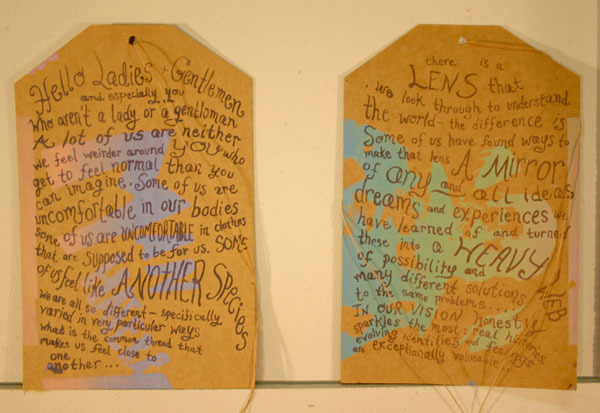 Hello Ladies + Gentlemen
and especially you
who aren't a lady or a gentleman
A lot of us are neither
we feel weirder around you who
get to feel normal than you
can imagine. Some of us are
uncomfortable in our bodies
some of us are UNCOMFORTABLE in clothes
that are supposed to be for us. SOME
of us feel like ANOTHER Specious
we are all so different - specifically
varied in very particular ways
what is the common thread that
makes us feel close to
one
another...
there is a
LENS that
we look through to understand
the world - the difference is
Some of us have found ways to
make that lens A MIRROR
of any and all ideas
dreams and experiences we
have learned of and turned
these into a WEAVY WEB
of possibility and
many different solutions
to the same problems.
IN OUR VISION honesty
sparkles the most real
evolving identities and feelings
an exceptionally valueable